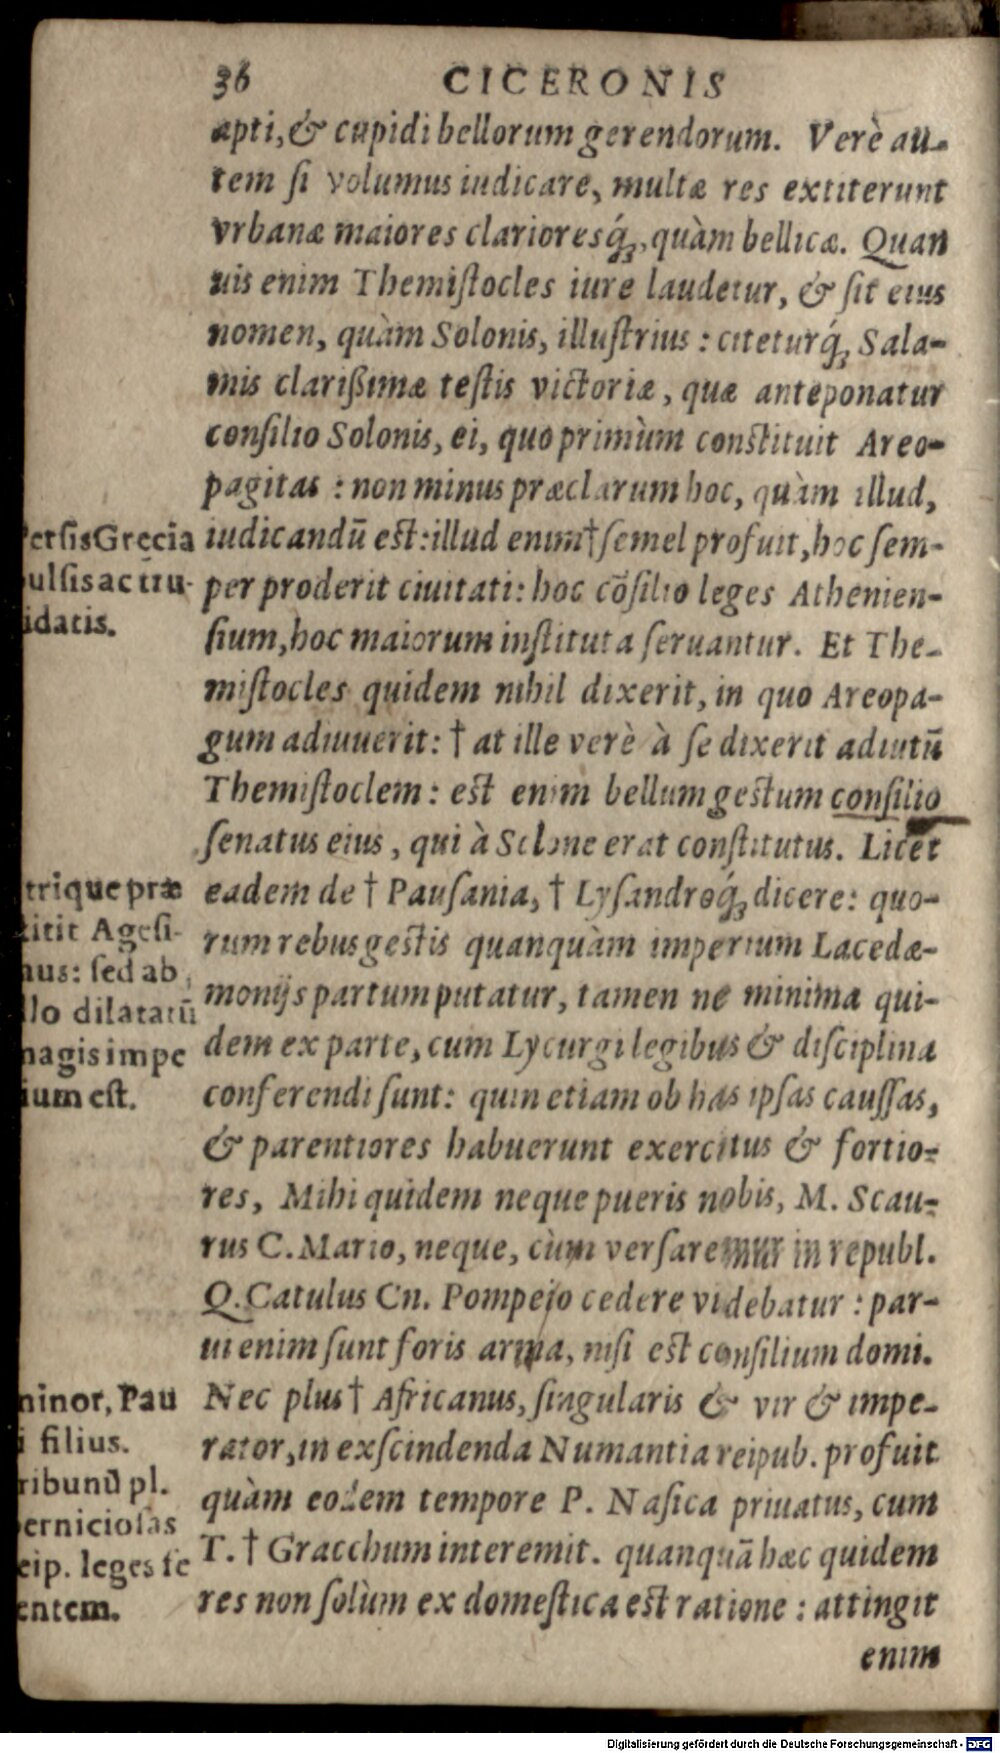 36 CICERONIS
apti, & cupidi bellorum gerendorum. Verè au-
tem ſi volumus iudicare, multæ res extiterunt
vrbanæ maiores clarioresq́;, quàm bellicæ. Quan
uis enim Themiſtocles iure laudetur, & ſit eius
nomen, quàm Solonis, illuſtrius: citeturq́; Sala-
mis clarißimæ teſtis victoriæ, quæ anteponatur
conſilio Solonis, ei, quo primùm conſtituit Areo-
pagitas: non minus præclarum hoc, quàm illud,
iudicandū eſt: illud enim† ſemel profuit, hoc ſem-
per proderit ciuitati: hoc cōſilio leges Athenien-
ſium, hoc maiorum inſtituta ſeruantur. Et The-
miſtocles quidem nihil dixerit, in quo Areopa-
gum adiuuerit: † at ille verè à ſe dixerit adiutū
Themiſtoclem: eſt enim bellum geſtum conſilio
ſenatus eius, qui à Solone erat conſtitutus. Licet
eadem de † Pauſania, † Lyſandroq́; dicere: quo-
rum rebus geſtis quanquàm imperium Lacedæ-
monijs partum putatur, tamen ne minima qui-
dem ex parte, cum Lycurgi legibus & diſciplina
conferendi ſunt: quin etiam ob has ipſas cauſſas,
& parentiores habuerunt exercitus & fortio-
res, Mihi quidem neque pueris nobis, M. Scau-
rus C. Mario, neque, cùm verſaremur in republ.
Q. Catulus Cn. Pompejo cedere videbatur: par-
ui enim ſunt foris arma, niſi eſt conſilium domi.
Nec plus † Africanus, ſingularis & vir & impe-
rator, in exſcindenda Numantia reipub. profuit
quàm eodem tempore P. Naſica priuatus, cum
T. † Gracchum interemit. quanquā hæc quidem
res non ſolùm ex domeſtica eſt ratione: attingit
enim
Perſis Gręcia
pulſis ac tru-
idatis.
trique præ
titit Ageſi-
aus: ſed ab
llo dilatatū
magis impe
ium eſt.
minor, Pau
i filius.
ribunū pl.
perniciosas
eip. leges fe
entem.
Digitalisierung gefördert durch die Deutsche Forschungsgemeinschaft - DFG